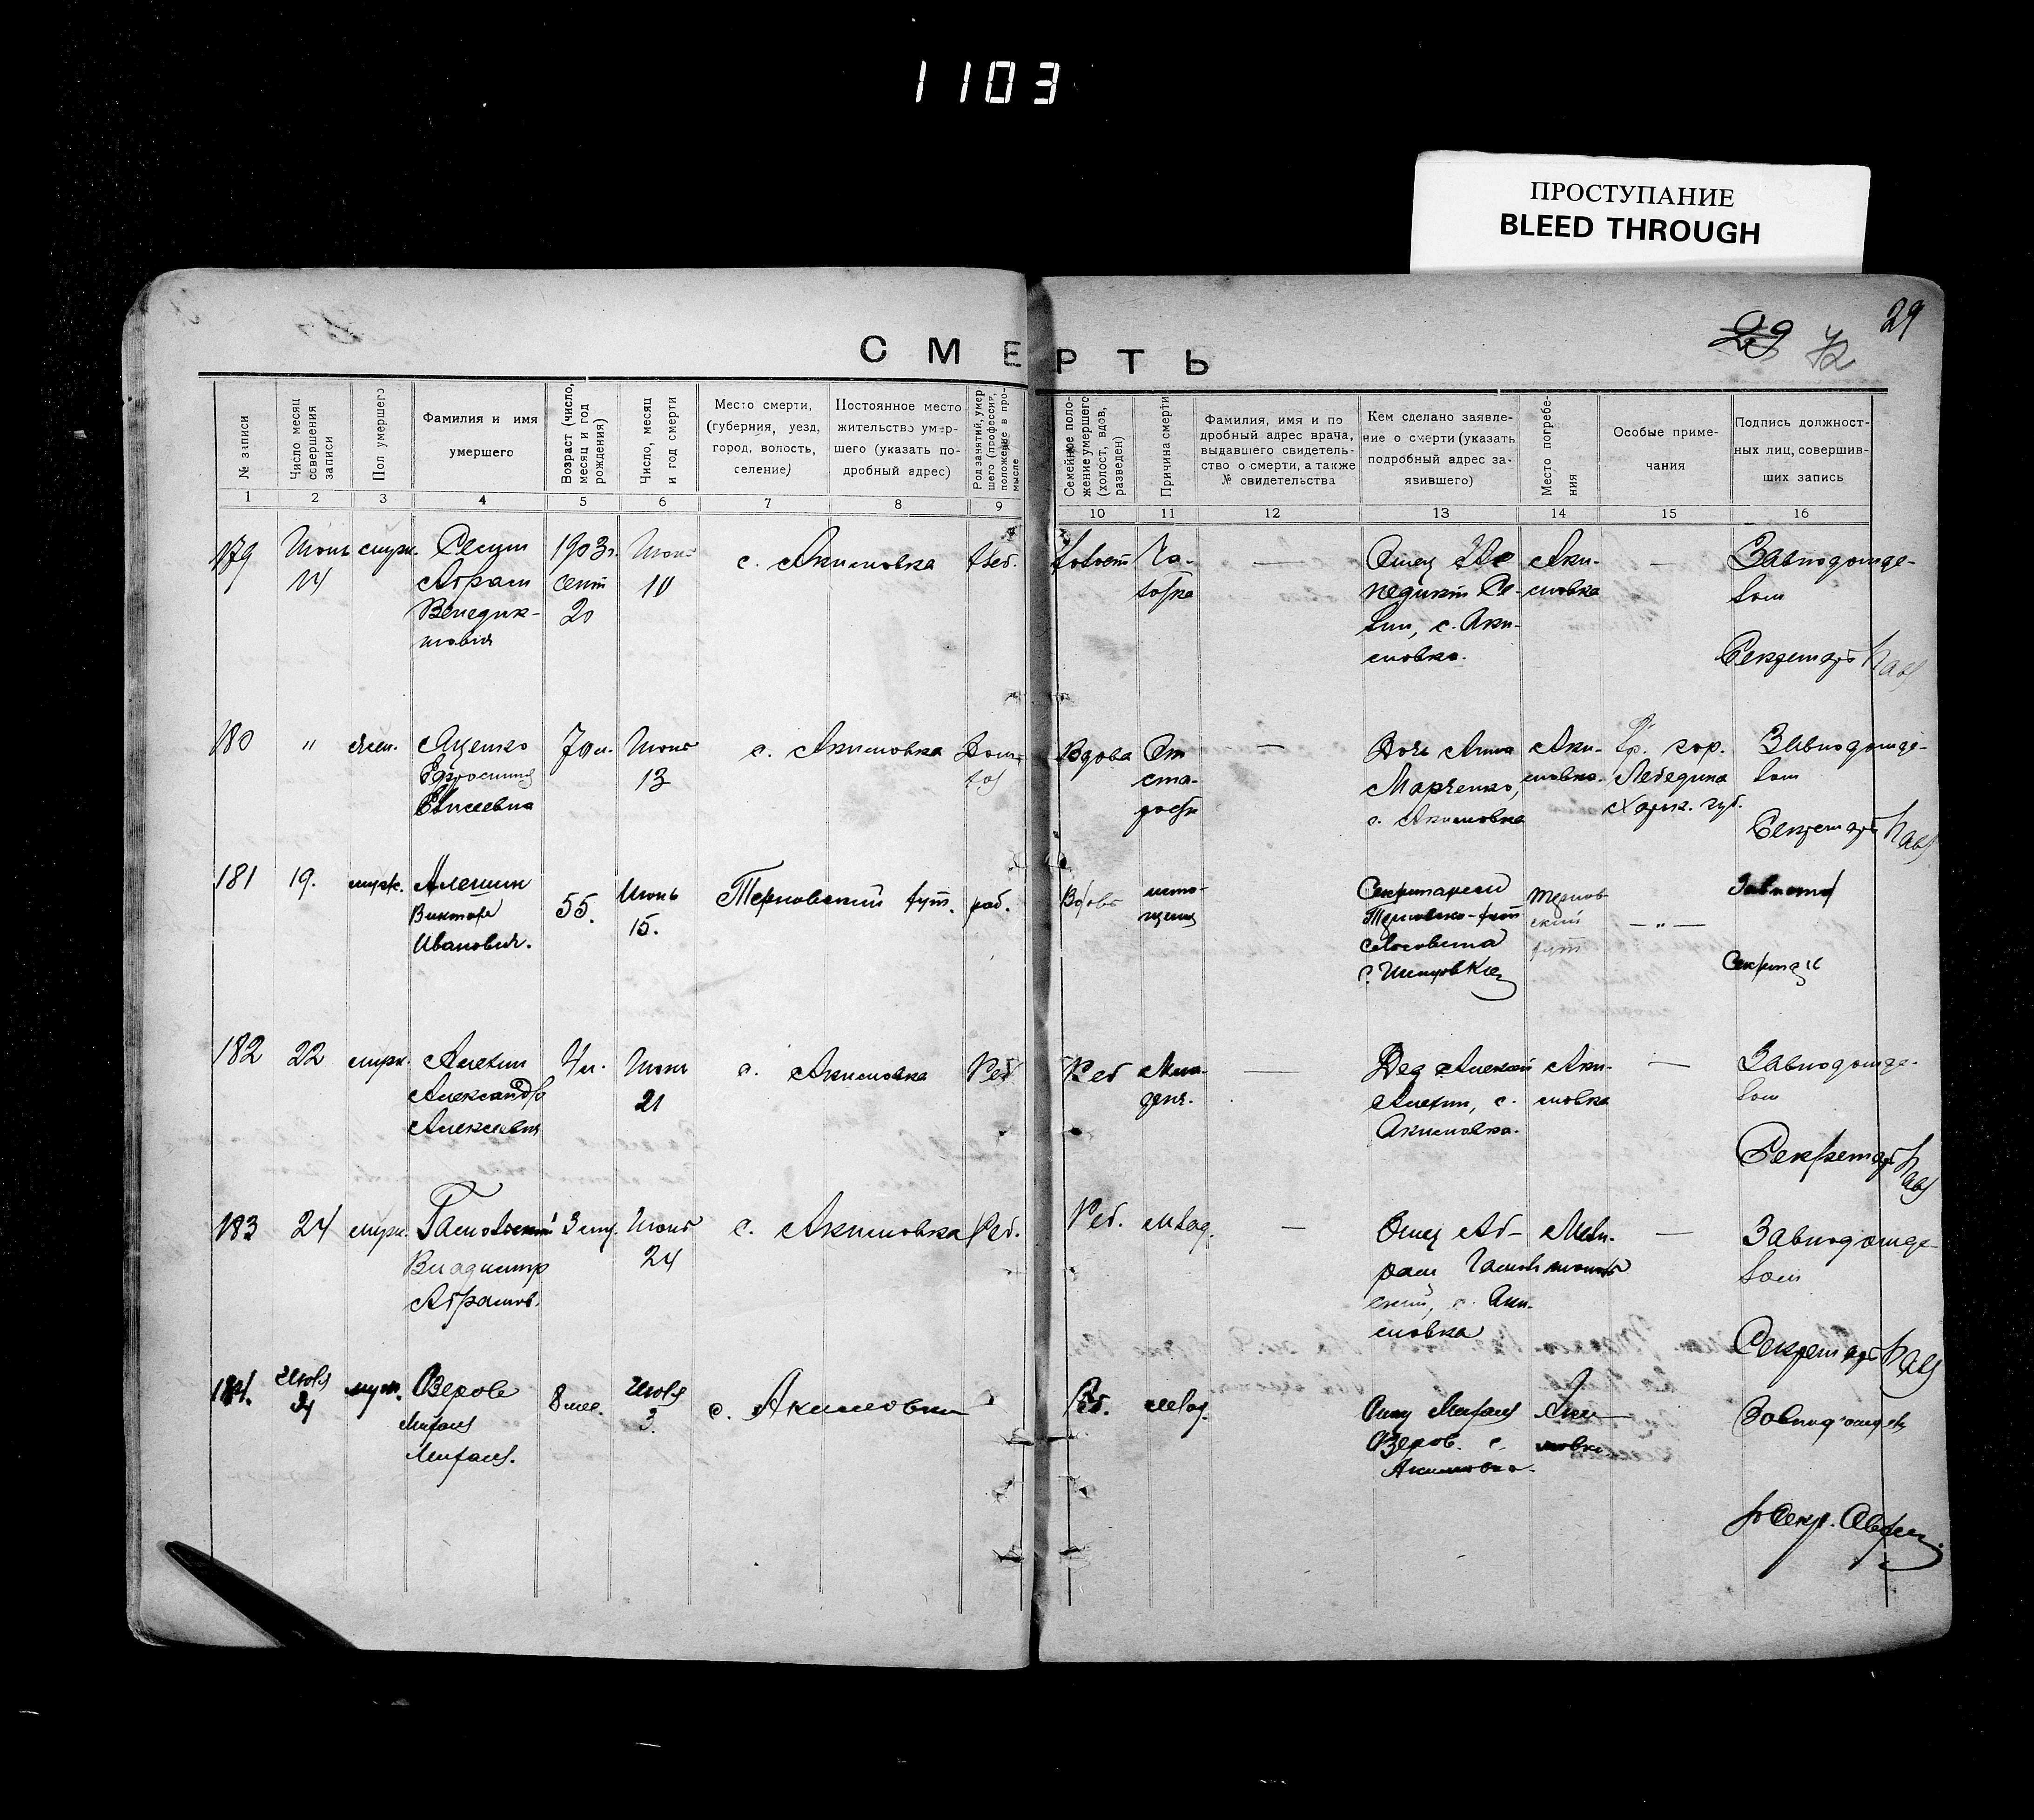 1103
ПРОСТУПАНИЕ
BLEED THROUGH
29
29 72
СМЕРТЬ
№ записи
Число месяц совершения записи
Пол умершего
Фамилия и имя
умершего
Возраст (число, месяц и год рождения)
Число, месяц и год смерти
Место смерти,
(губерния, уезд,
город, волость,
селение)
Постоянное место
жительство умер-
шего (указать по-
дробный адрес)
Род занятий, умер-
шего (профессия,
положение в про-
мысле
Семейное поло-
жение умершего
(холост, вдов,
разведен)
Причина смерти
Фамилия, имя и по
дробный адрес врача,
выдавшего свидетель-
ство о смерти, а также
№ свидетельства
Кем сделано заявле-
ние о смерти (указать
подробный адрес за-
явившего)
Место погребе-
ния
Особые приме-
чания
Подпись должност-
ных лиц, совершив-
ших запись
1 2 3 4 5 6 7 8 9 10 11 12 13 14 15 16
179
Июнь
14
мужс.
Абрам
Венедик-
тович
1903 г.
сент
20
Июнь
10
с. Акимовка
Холост
Ча-
хотка
—
Отец Ве
недикт
с. Аки-
мовка.
Аки-
мовка
—
Завподотде-
лом
Секретарь
180
"
жен.
Яценко
Ефросиния
Елисеевна
70 л.
Июнь
13
с. Акимовка
Вдова
От
ста-
рости
—
Дочь Анна
Марченко,
с. Акимовка
Аки-
мовка.
Гр. гор.
Лебедина
Харьк. губ.
Завподотде-
лом
Секретарь
181
19.
мужс.
Алешин
Виктор
Иванович.
55.
Июнь
15.
Терновский хут.
раб.
исто-
щения
Секретарем
сельсовета
Тернов-
ский
хут
— " —
Секретарь
182
22
мужс.
Алехин
Александр
Алексеевич
4 м.
Июнь
21
с. Акимовка
Реб
Реб
Мла-
денч.
—
Дед Алексей
Алехин, с.
Акимовка.
Аки-
мовка
—
Завподотде-
лом
Секретарь
183
24
мужс.
Владимир
Абрамов.
3 мец.
Июнь
24
с. Акимовка
Реб.
Реб.
млад.
—
Отец Аб-
рам
с. Аки-
мовка
Мели-
тополь
—
Завподотде-
лом
Секретарь
184.
Июля
муж.
Озеров
Михаил
Михаил.
8 мес.
Июля
3.
с. Акимовка
Реб.
млад.
Отец Михаил
Озеров. с.
Акимовка.
Аки-
мовка
Завподотдел